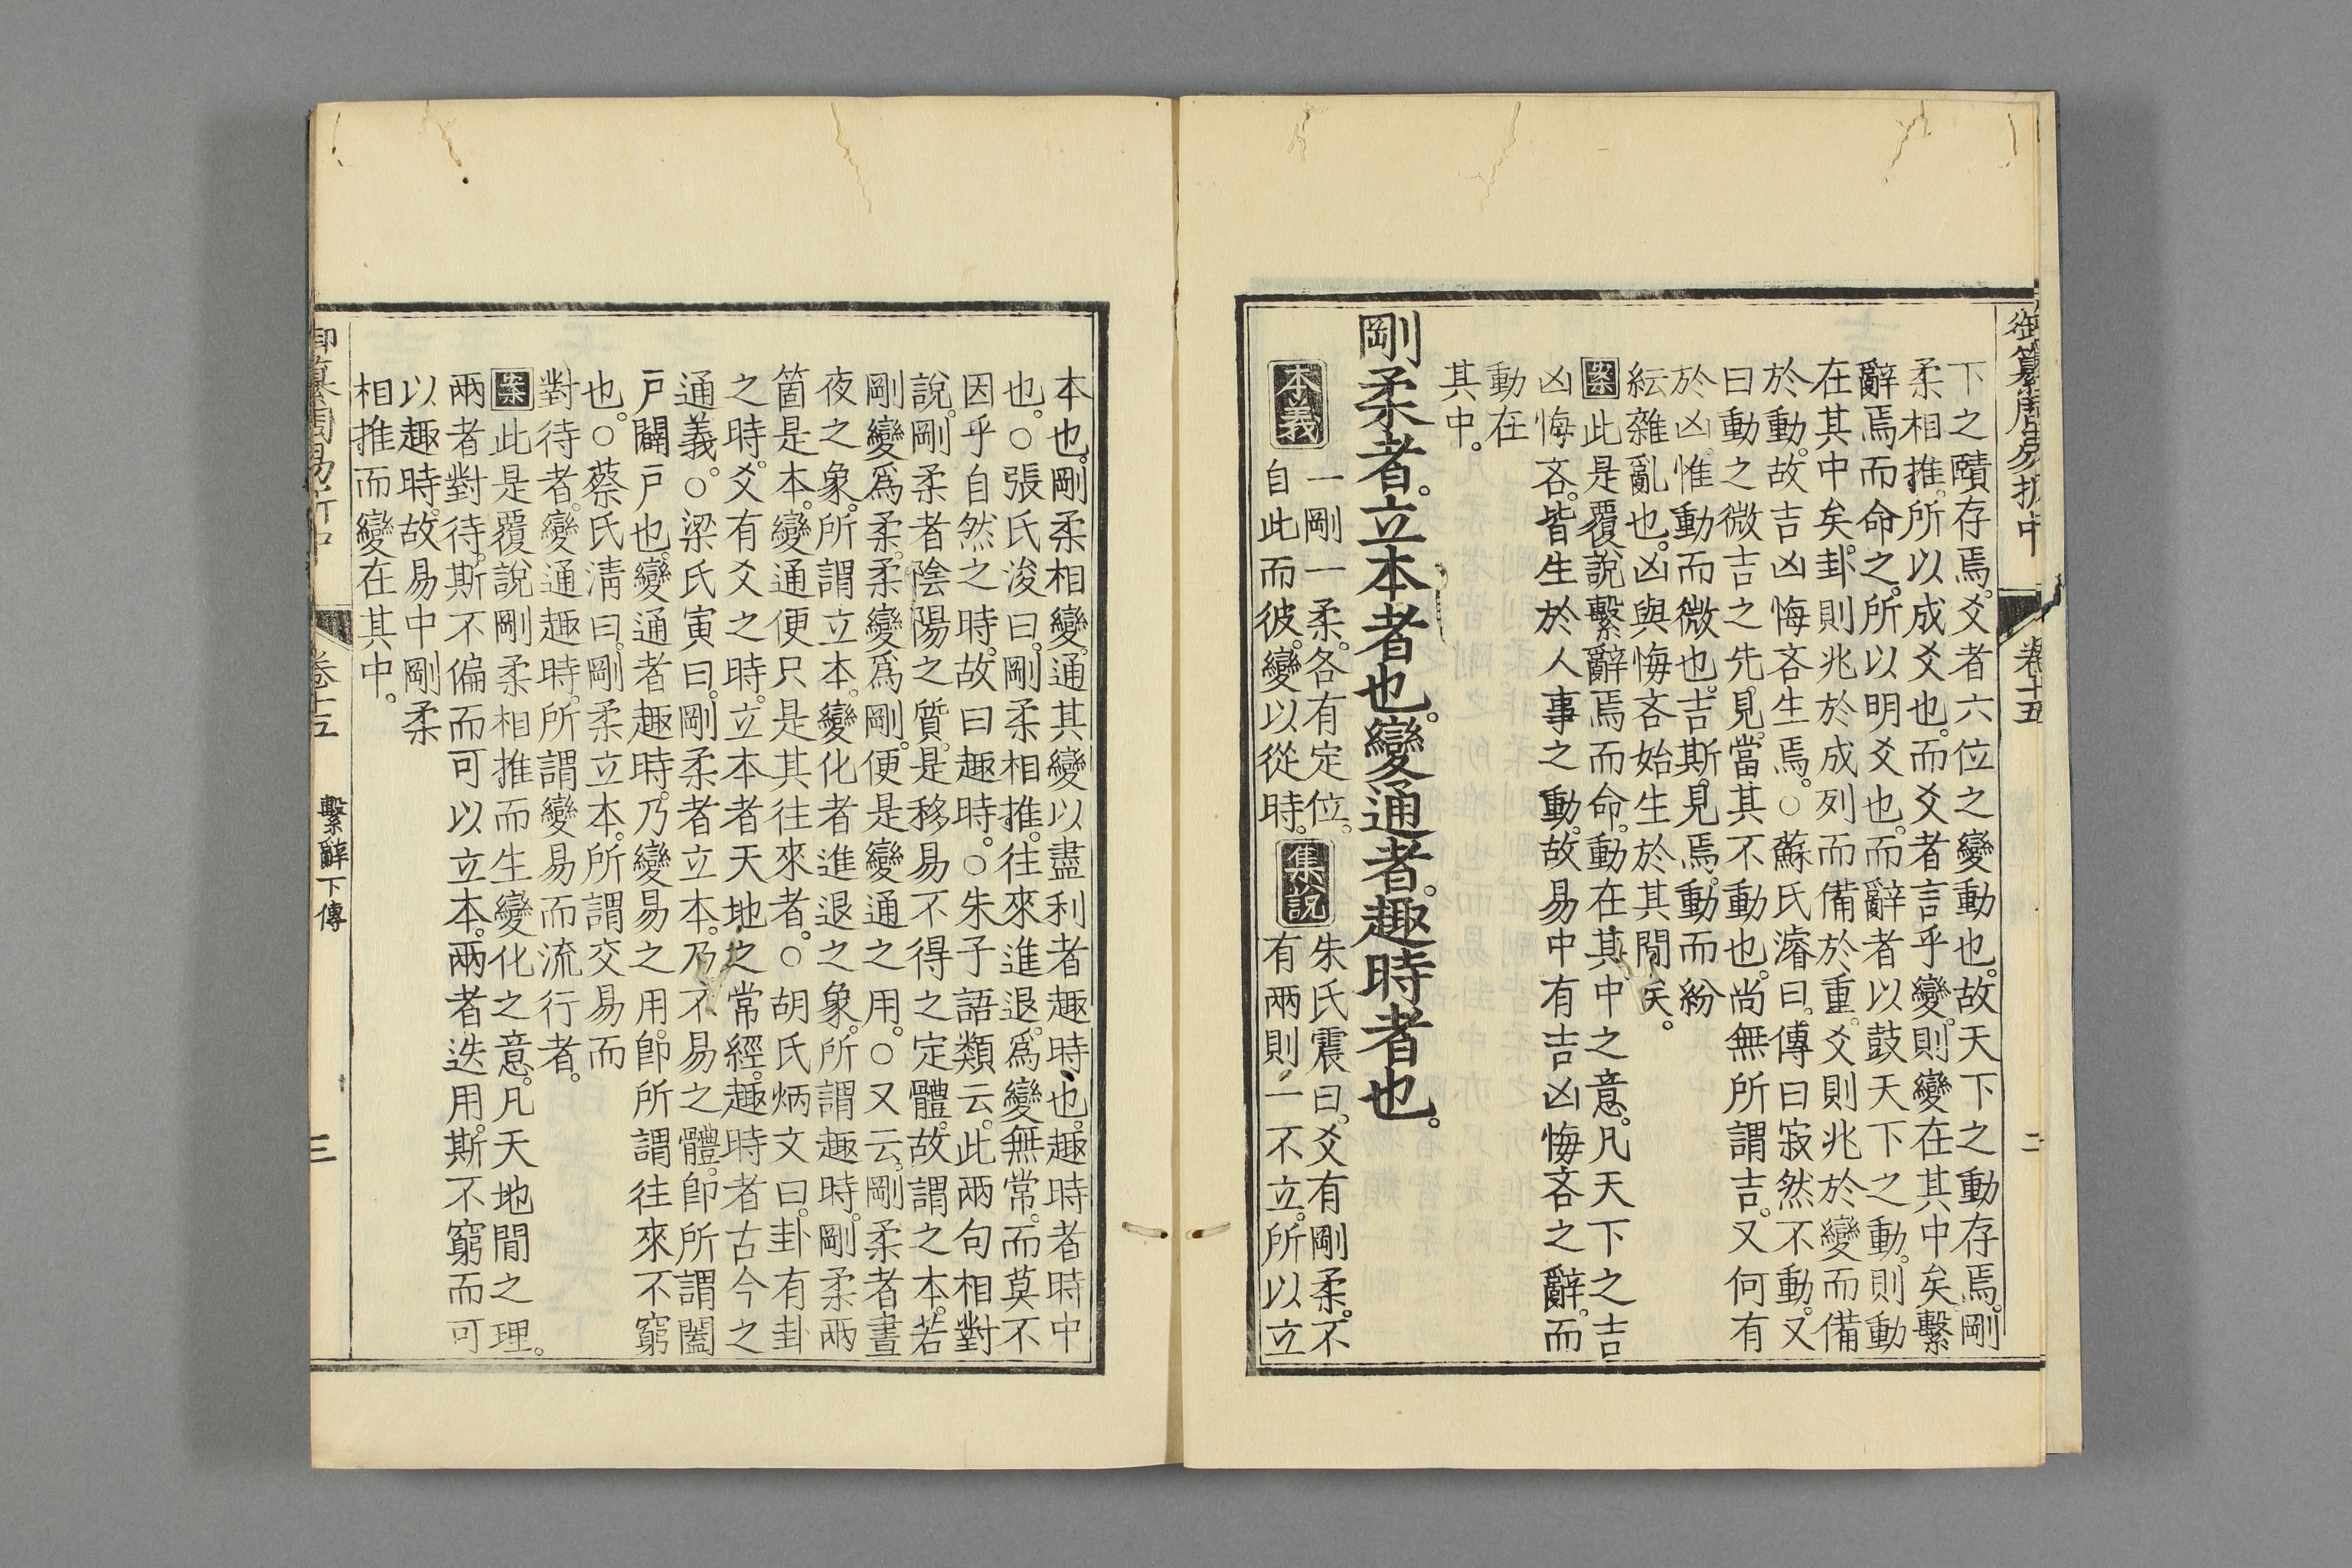 御纂周易折中 卷十五 二
下之賾存焉。爻者六位之變動也。故天下之動存焉。剛
柔相推。所以成爻也。而爻者言乎變。則變在其中矣繫
辭焉而命之。所以明爻也。而辭者以鼓天下之動。則動
在其中矣。卦則兆於成列而備於重。爻則兆於變而備
於動。故吉凶悔吝生焉。○蘇氏濬曰。傳曰寂然不動。又
曰動之微吉之先見。當其不動也。尚無所謂吉。又何有
於凶。惟動而微也。吉斯見焉。動而紛
紜雜亂也。凶與悔吝始生於其閒矣。
案此是覆說繫辭焉而命。動在其中之意。凡天下之吉
凶悔吝。皆生於人事之動。故易中有吉凶悔吝之辭。而
動在
其中。
剛柔者。立本者也。變通者。趣時者也。
本義
一剛一柔。各有定位。
自此而彼。變以從時。
集說
朱氏震曰。爻有剛柔。不
有兩則一不立。所以立
本也。剛柔相變。通其變以盡利者趣時也。趣時者時中
也。○張氏浚曰。剛柔相推。往來進退。爲變無常。而莫不
因乎自然之時。故曰趣時。○朱子語類云。此兩句相對
說。剛柔者陰陽之質。是移易不得之定體。故謂之本。若
剛變爲柔。柔變爲剛。便是變通之用。○又云。剛柔者晝
夜之象。所謂立本。變化者進退之象。所謂趣時。剛柔兩
箇是本。變通便只是其往來者。○胡氏炳文曰。卦有卦
之時。爻有爻之時。立本者天地之常經。趣時者古今之
通義。○梁氏寅曰。剛柔者立本。乃不易之體。卽所謂闔
戶闢戶也。變通者趣時。乃變易之用。卽所謂往來不窮
也。○蔡氏淸曰。剛柔立本。所謂交易而
對待者。變通趣時。所謂變易而流行者。
案此是覆說剛柔相推而生變化之意。凡天地閒之理。
兩者對待。斯不偏而可以立本。兩者迭用。斯不窮而可
以趣時。故易中剛柔
相推而變在其中。
御纂周易折中 卷十五 繫辭下傳 三